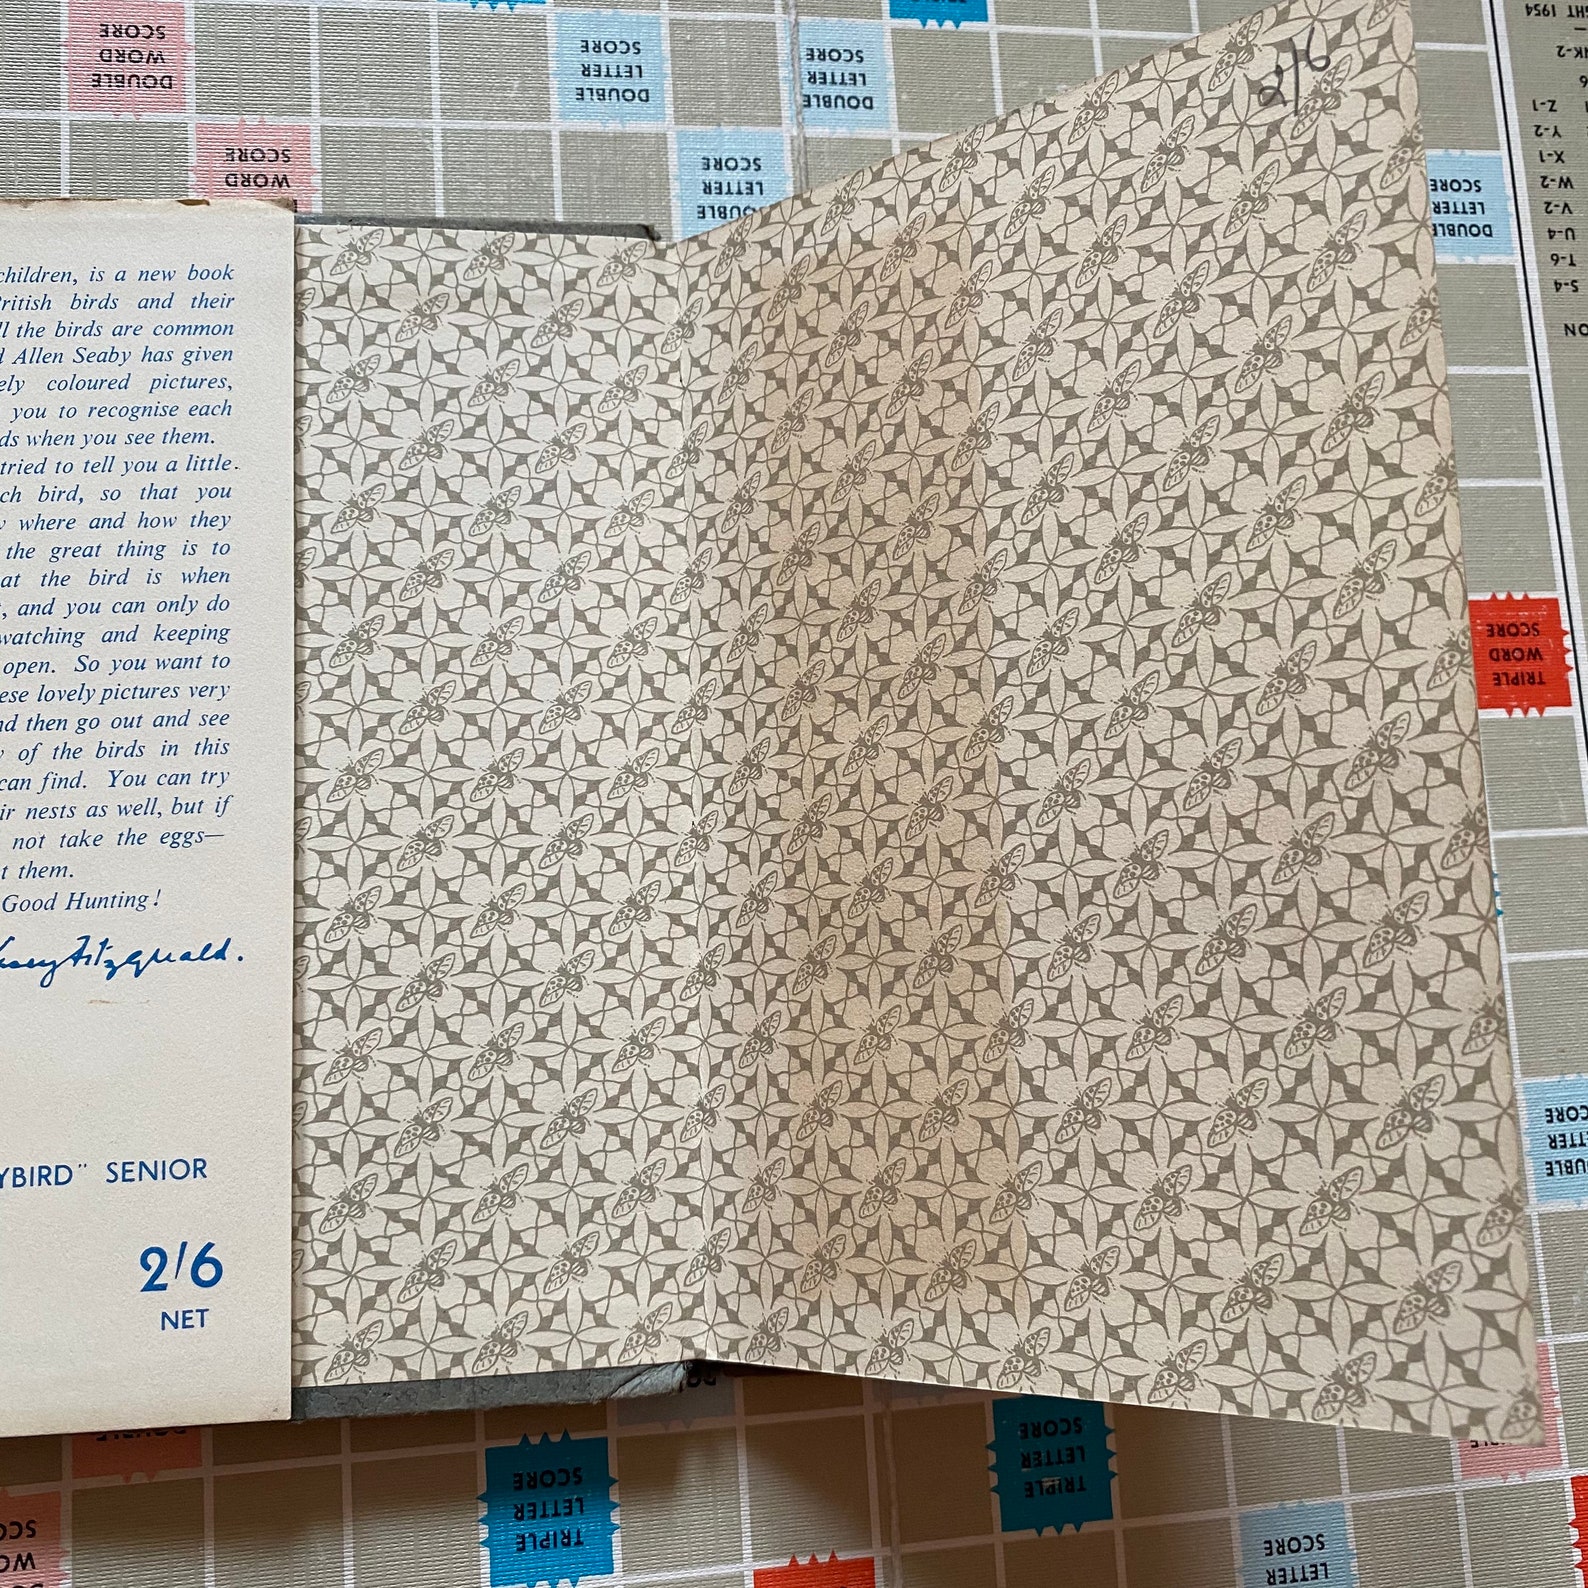 children, is a new book
British birds and their
the birds are common
Allen Seaby has given
coloured pictures,
you to recognise each
when you see them.
tried to tell you a little
bird, so that you
where and how they
the great thing is to
at the bird is when
, and you can only do
watching and keeping
open. So you want to
lovely pictures very
then go out and see
of the birds in this
can find. You can try
nests as well, but if
not take the eggs—
them.
Good Hunting!
Fitzgerald.
YBIRD" SENIOR
2/6
NET
2/6
DOUBLE
WORD
SCORE
DOUBLE
LETTER
SCORE
DOUBLE
LETTER
SCORE
WORD
SCORE
DOUBLE
LETTER
SCORE
DOUBLE
LETTER
SCORE
TRIPLE
WORD
SCORE
LETTER
SCORE
TRIPLE
LETTER
SCORE
TRIPLE
LETTER
SCORE
LETTER
SCORE
S-4
T-6
U-4
V-2
W-2
X-1
Y-2
Z-1
1954